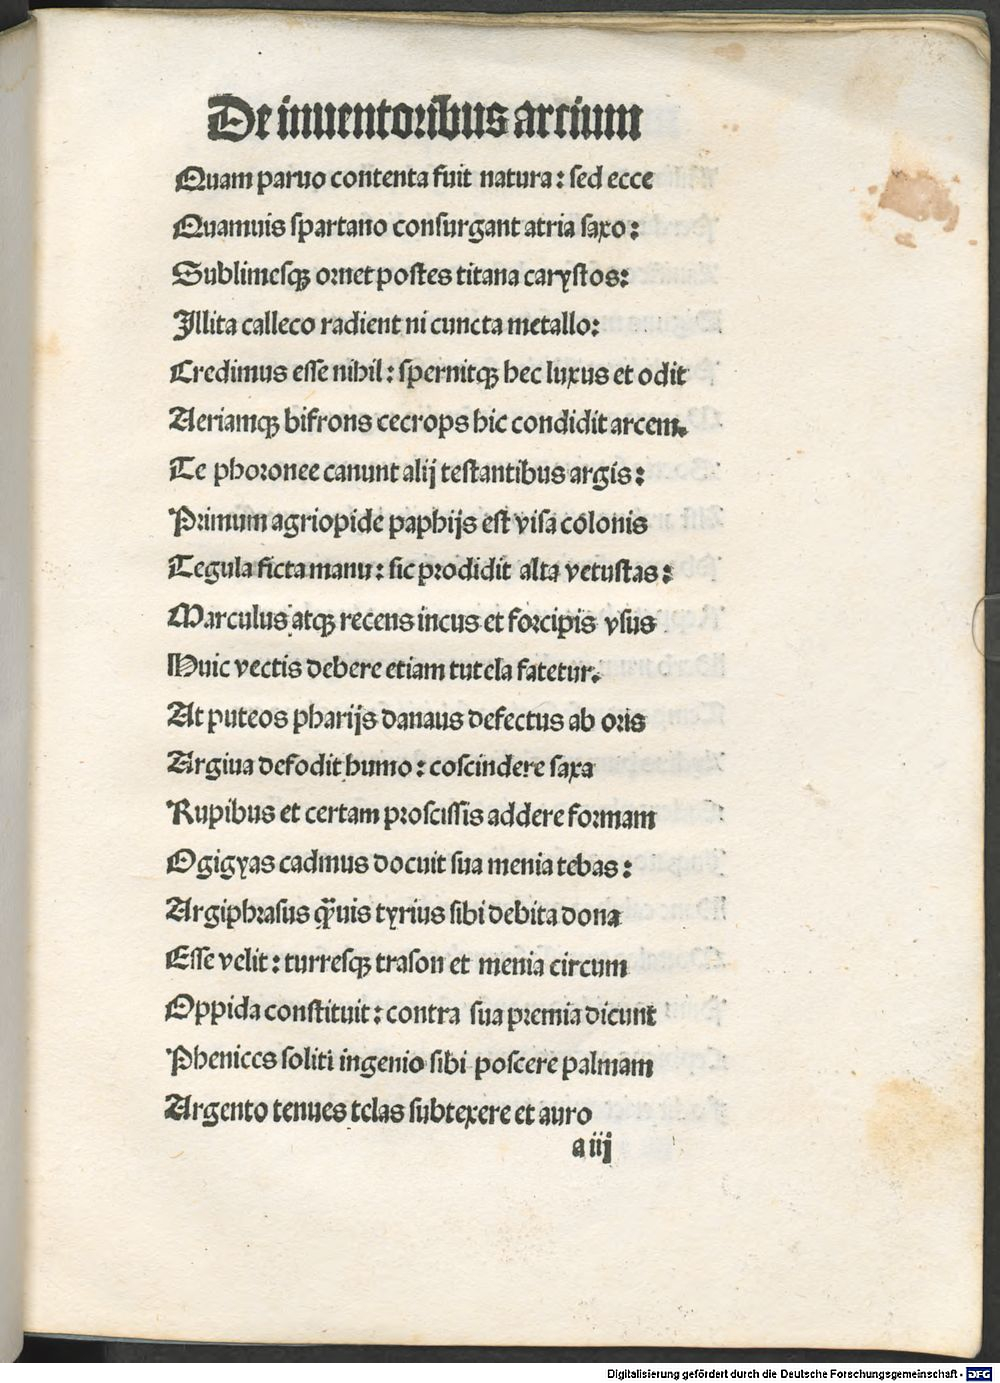 De inuentoribus artium
Quam paruo contenta fuit natura: sed ecce
Quamuis spartano consurgant atria saxo:
Sublimesqꝫ ornet postes titana carystos:
Illita calleco radient ni cuncta metallo:
Credimus esse nihil: spernitqꝫ hec luxus et odit
Aeriamqꝫ bifrons cecrops hic condidit arcem.
Te phoronee canunt alij testantibus argis:
Primum agriopide paphijs est visa colonis
Tegula ficta manu: sic prodidit alta vetustas:
Marculus atqꝫ recens incus et forcipis vsus
Huic vectis debere etiam tutela fatetur.
At puteos pharijs danaus defectus ab oris
Argiua defodit humo: coscindere saxa
Rupibus et certam proscissis addere formam
Ogigyas cadmus docuit sua menia tebas:
Argiphrasus q̃uis tyrius sibi debita dona
Esse velit: turresqꝫ trason et menia circum
Oppida constituit: contra sua premia dicunt
Phenices soliti ingenio sibi poscere palmam
Argento tenues telas subtexere et auro
a iij
Digitalisierung gefördert durch die Deutsche Forschungsgemeinschaft - DFG